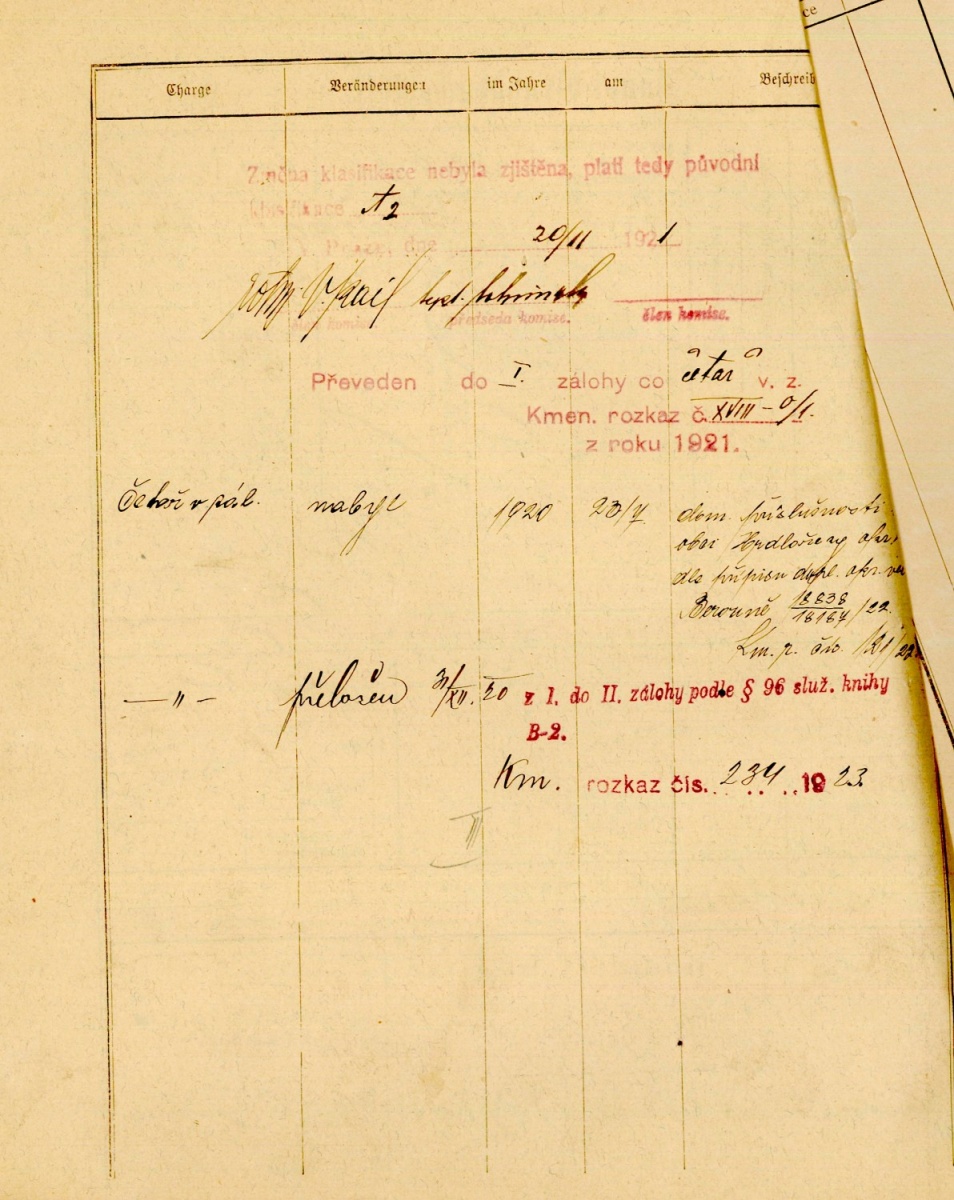 ce
Charge Veränderungen im Jahre am Beschreib
Změna klasifikace nebyla zjištěna, platí tedy původní
klasifikace A2
Praze, dne 20/II 1921
člen komise předseda komise. člen komise.
Převeden do I. zálohy co četař v. z.
Kmen. rozkaz č. XVIII - 0/1.
z roku 1921.
Četař v zál. nabyl 1920 23/7 dom. příslušnosti
obci Hrdlořezy okr.
dle přípisu dopl. okr. vel
Berouně 18838/18187/22.
Km. r. čís. 121/22
— " — přeložen 31/XII. 20 z I. do II. zálohy podle § 96 služ. knihy
B-2.
Km. rozkaz čís. 234 1923.
II